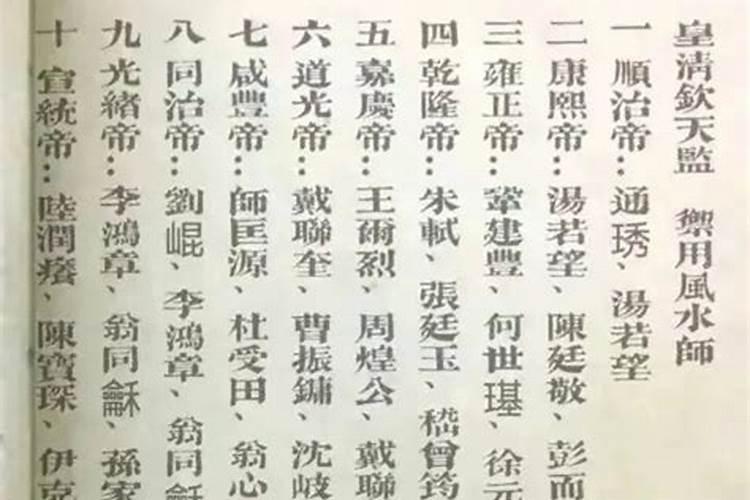 皇清欽天監 禦用風水師
一順治帝：通琇、湯若望
二康熙帝：湯若望、陳廷敬、彭而
三雍正帝：鞏建豐、何世璂、徐元
四乾隆帝：朱軾、張廷玉、嵇曾筠
五嘉慶帝：王爾烈、周煌公、戴聯
六道光帝：戴聯奎、曹振鏞、沈岐
七咸豐帝：師匡源、杜受田、翁心
八同治帝：劉崐、李鴻章、翁同龢
九光緒帝：李鴻章、翁同龢、孫家
十宣統帝：陸潤癢、陳寶琛、伊克